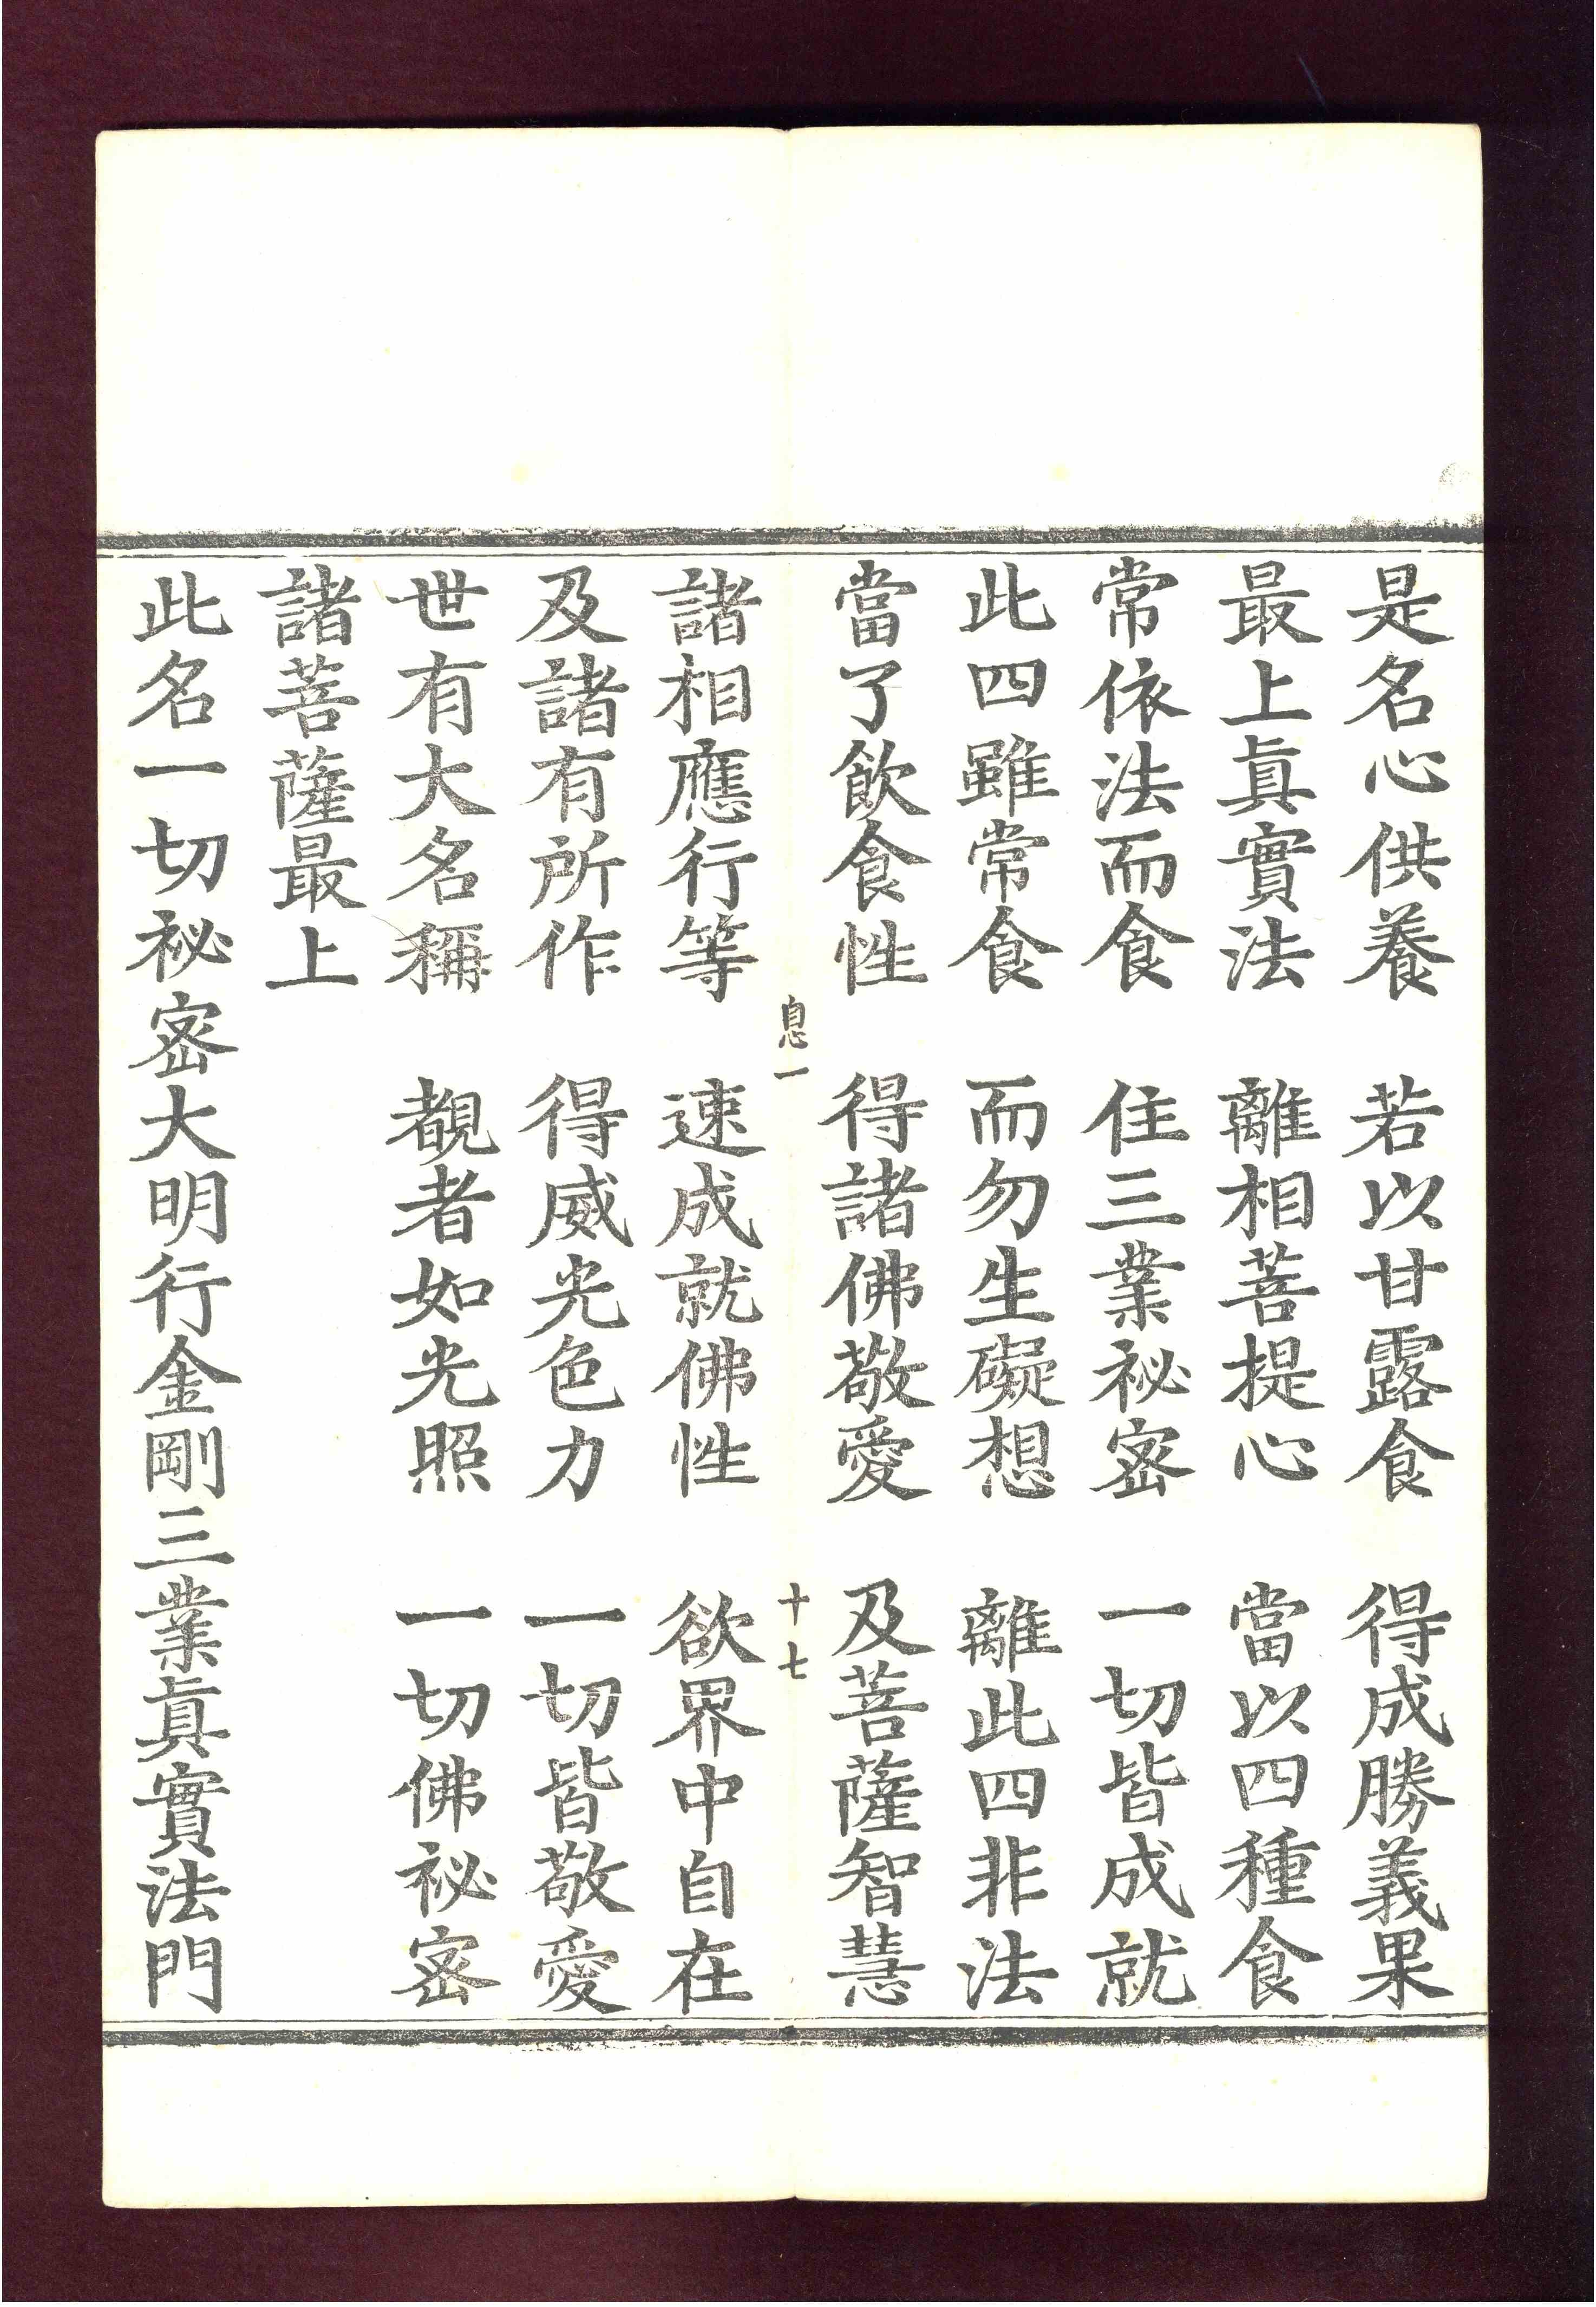 是名心供養　若以甘露食　得成勝義果
最上眞實法　離相菩提心　當以四種食
常依法而食　住三業祕密　一切皆成就
此四雖常食　而勿生礙想　離此四非法
當了飲食性　得諸佛敬愛　及菩薩智慧
息一　十七
諸相應行等　速成就佛性　欲界中自在
及諸有所作　得威光色力　一切皆敬愛
世有大名稱　覩者如光照　一切佛祕密
諸菩薩最上
此名一切祕密大明行金剛三業眞實法門